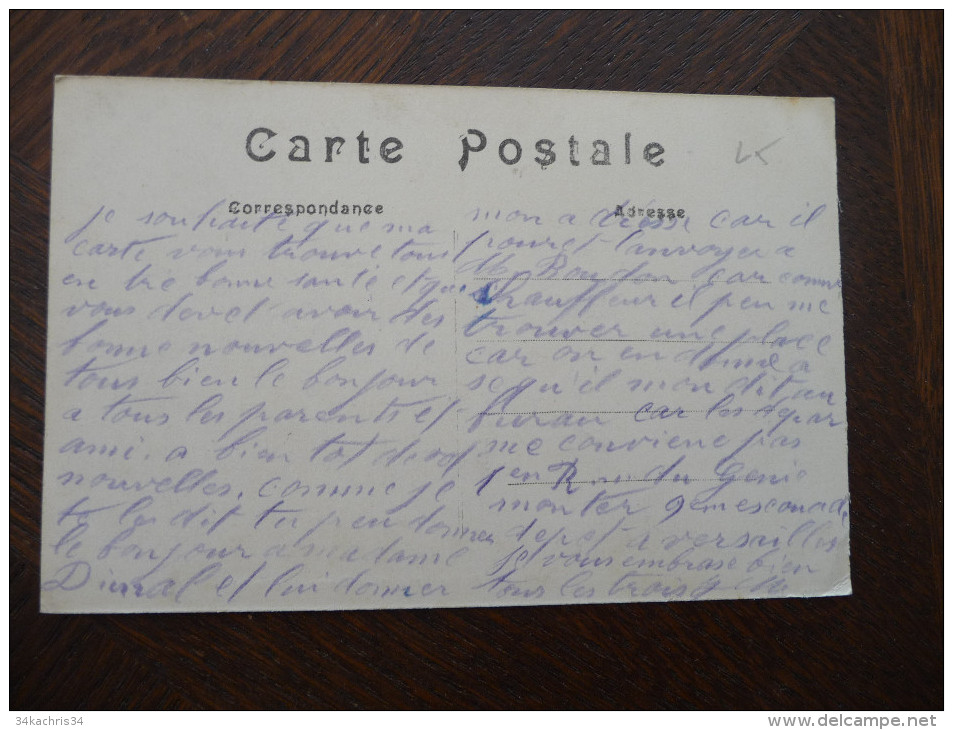 Carte Postale
Correspondance
Adresse
je souhaite que ma
carte vous trouve tous
en tré bonne santé et que
vous devet avoir des
bonne nouvelles de
tous bien le bonjour
a tous les parents et
ami. a bien tot de vos
nouvelles. comme je
te les dit tu peu donner
le bonjour a madame
Durral et lui donner
mon adresse car il
pouret l'anvoyer a
Mr Roudon car comme
chauffeur il peu me
trouver une place
car on en dmme a
se qu'il mon dit au
burau car les
me conviene pas
1er R. du Genie
monter 9em escouade
depot a versailles
je vous embrase bien
tous les trois
34kachris34
www.delcampe.net